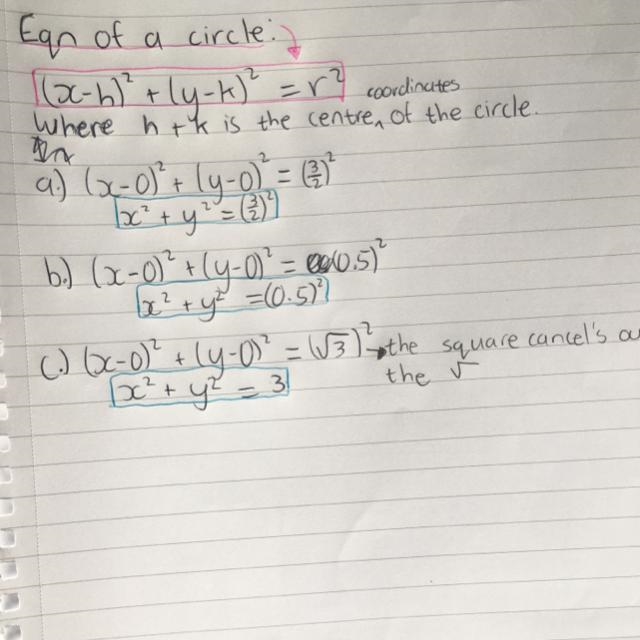 Eqn of a circle:
(x-h)² + (y-k)² = r²
Where h + k is the centre, coordinates of the circle.
a.) (x-0)² + (y-0)² = (3/2)²
x² + y² = (3/2)²
b.) (x-0)² + (y-0)² = (0.5)²
x² + y² = (0.5)²
c.) (x-0)² + (y-0)² = (√3)² → the square cancel's
the √
x² + y² = 3